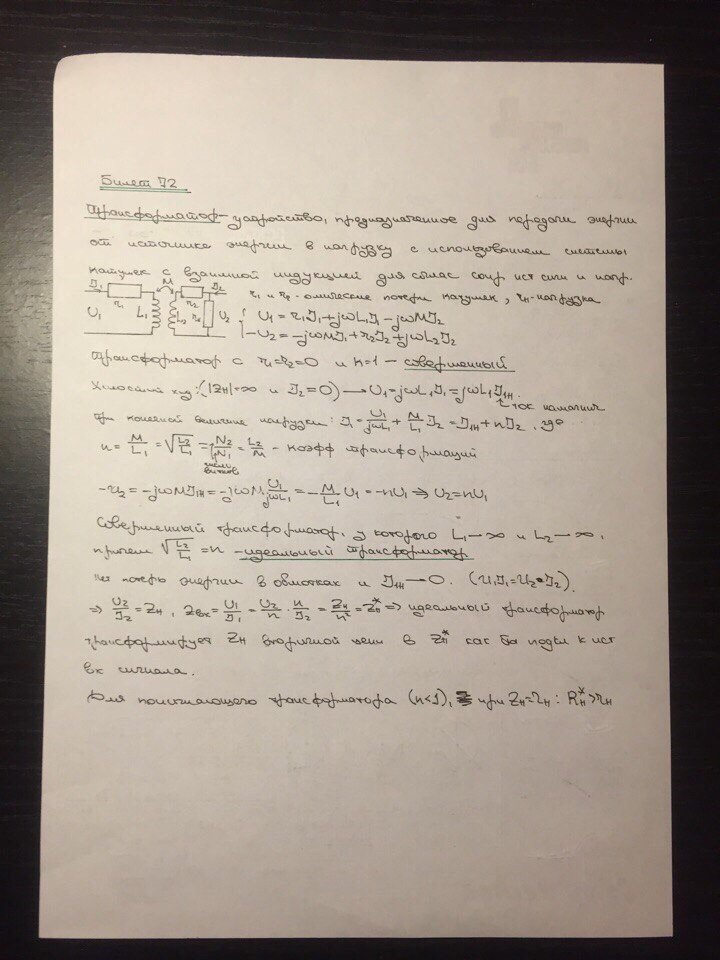 Билет 72
Трансформатор – устройство, предназначенное для передачи энергии
от источника энергии в нагрузку с использованием системы
катушек с взаимной индукцией для соглас сопр ист сигн и нагр.
I₁ M I₂
r₁ r₂
U₁ L₁ L₂ rн U₂
r₁ и r₂ - омические потери катушек, rн - нагрузка
U₁ = r₁I₁+jωL₁I₁-jωMI₂
-U₂ = -jωMI₁+r₂I₂+jωL₂I₂
Трансформатор с r₁=r₂=0 и k=1 – совершенный
Холостой ход: (|Zн|=∞ и I₂=0) → U₁=jωL₁I₁=jωL₁I₁н
ток намагнич
При конечной величине нагрузки: I₁=U₁/jωL₁ + M/L₁ I₂ = I₁н + nI₂, где
n = M/L₁ = √(L₂/L₁) = N₂/N₁ = L₂/M - коэфф трансформации
число витков
-U₂ = -jωMI₁н = -jωM U₁/jωL₁ = -M/L₁ U₁ = -nU₁ ⇒ U₂=nU₁
Совершенный трансформатор, у которого L₁→∞ и L₂→∞,
причем √(L₂/L₁) = n - идеальный трансформатор
Нет потерь энергии в обмотках и I₁н→0. (U₁I₁=U₂I₂).
⇒ U₂/I₂ = Zн, Zвх = U₁/I₁ = U₂/n · n/I₂ = Zн/n² = Zн* ⇒ идеальный трансформатор
трансформирует Zн вторичной цепи в Zн* как бы подкл к ист
вх сигнала.
Для понижающего трансформатора (n<1), при Zн=rн: Rн*>rн